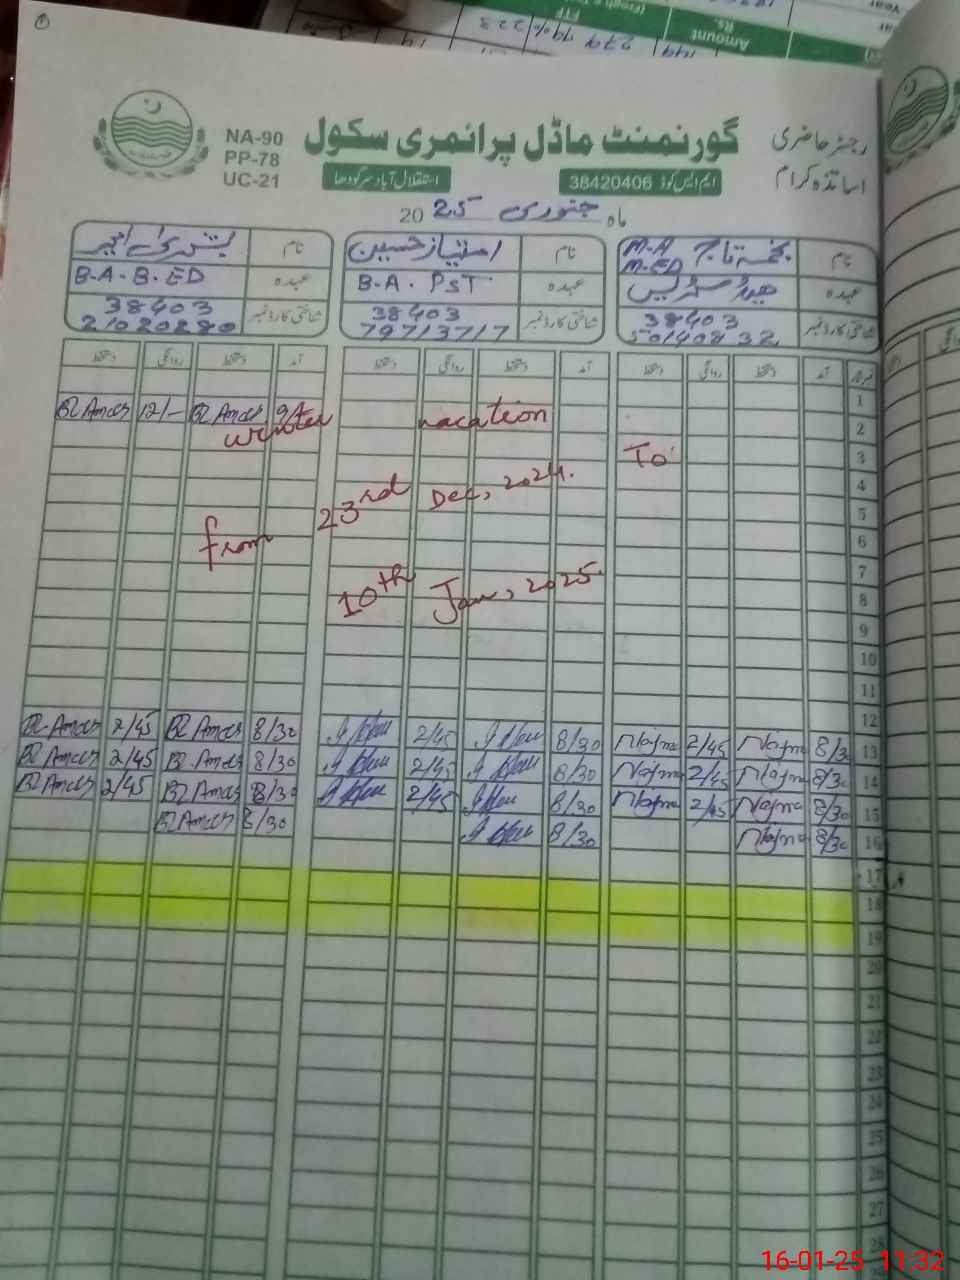 NA-90
PP-78
UC-21
گورنمنٹ ماڈل پرائمری سکول
رجسٹر حاضری
اساتذہ کرام
استقلال آباد سرگودھا
ایم ایس کوڈ 38420406
ماہ جنوری 2025
نام
M.A
M.ED
عہدہ
ہیڈ مسٹریس
شناختی کارڈ نمبر
38403
50140832
نام امتیاز حسین
عہدہ B.A. PST
شناختی کارڈ نمبر
38403
79713717
نام
عہدہ B.A. B.ED
شناختی کارڈ نمبر
38403
21020280
دستخط روانگی دستخط آمد دستخط روانگی دستخط آمد دستخط روانگی دستخط آمد
1
12/-
2
winter vacation
3
To
4
from 23rd Dec, 2024.
5
6
7
10th Jan, 2025.
8
9
10
11
12
2/45 8/30 2/45 8/30 Najma 2/45 Najma 8/30 13
2/45 8/30 2/45 8/30 Najma 2/45 Najma 8/30 14
2/45 8/30 2/45 8/30 Najma 2/45 Najma 8/30 15
8/30 8/30 Najma 8/30 16
17
18
19
20
21
22
23
24
25
26
27
28
16-01-25 11:32